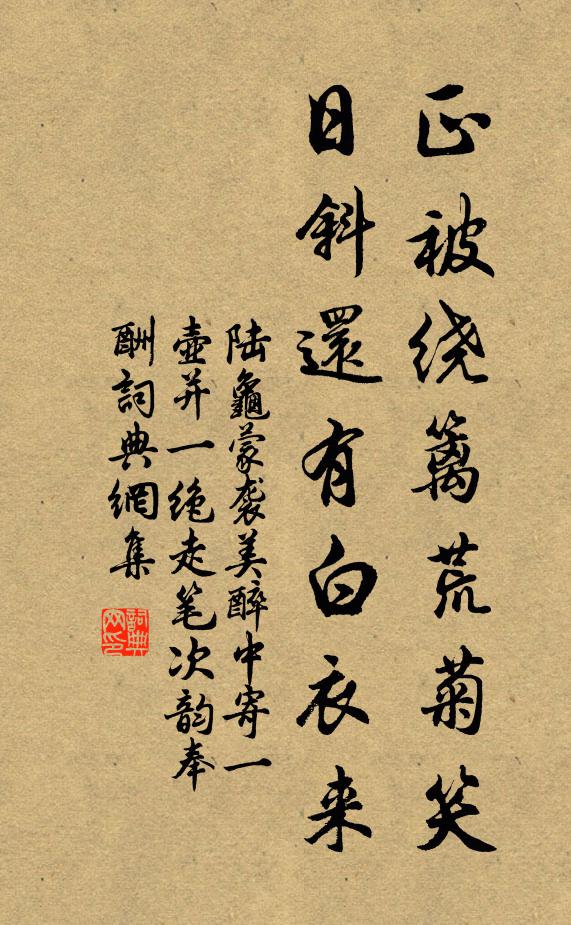 正被绕篱荒菊笑
日斜還有白衣来
陆龜蒙袭美醉中寄一
壶并一绝走笔次韵奉
酬詞典網集
詞典
网印